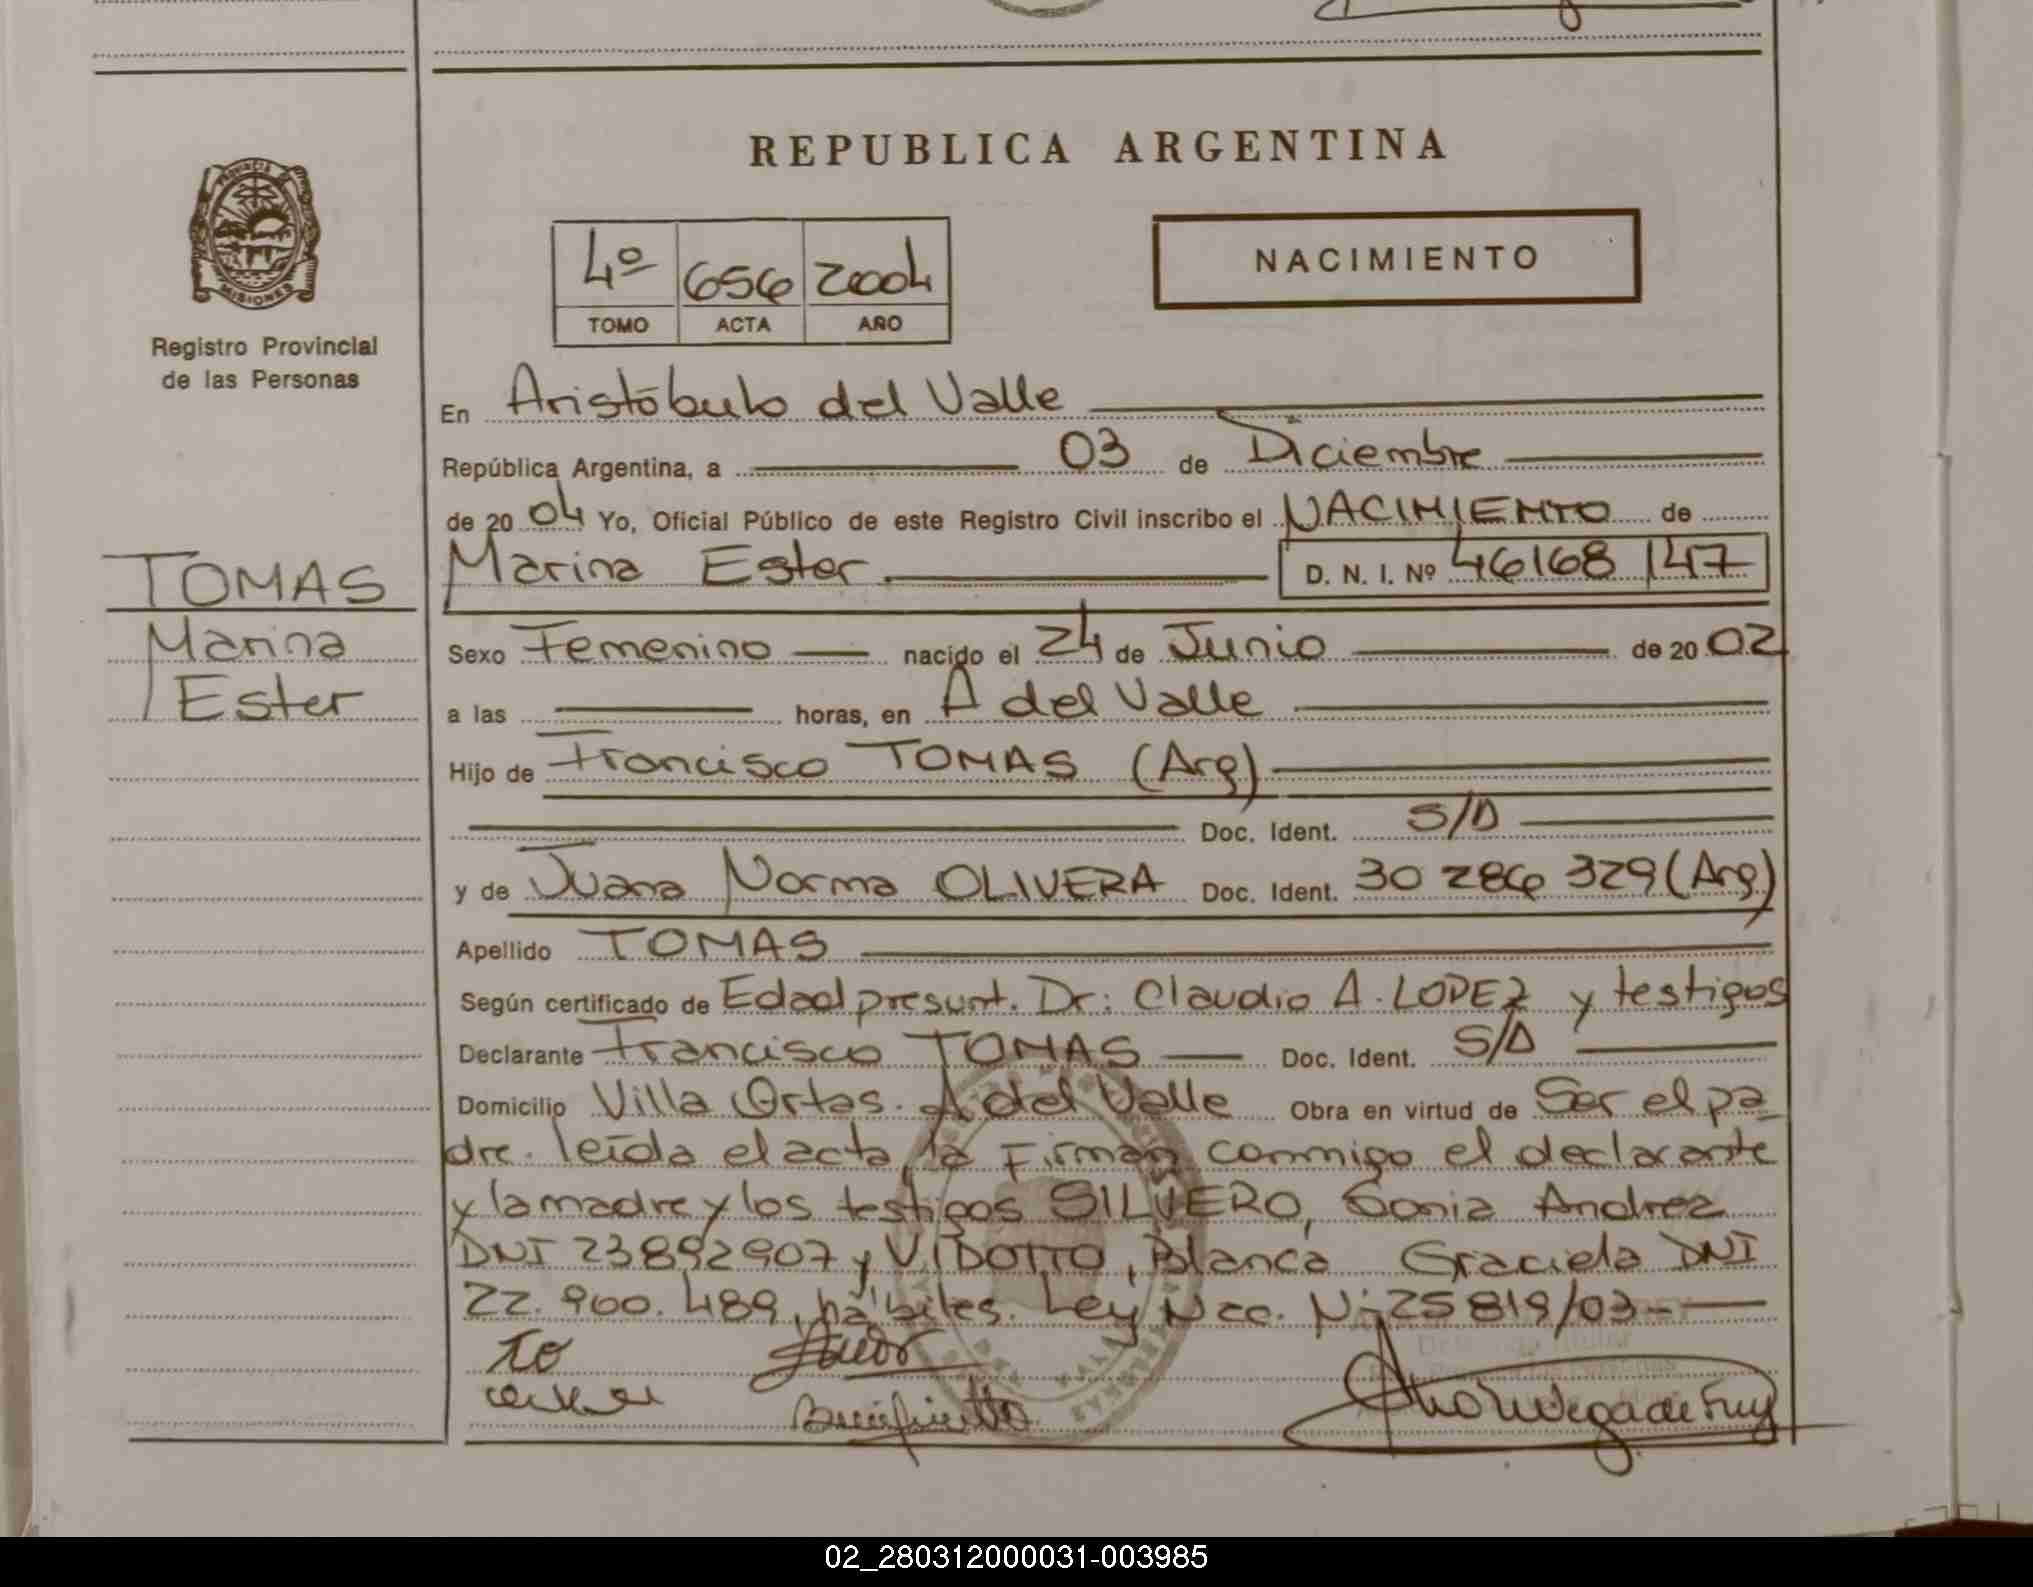 REPUBLICA ARGENTINA
PROVINCIA DE
MISIONES
Registro Provincial
de las Personas
4º 656 2004
TOMO ACTA AÑO
NACIMIENTO
En Aristóbulo del Valle
República Argentina, a 03 de Diciembre
de 2004 Yo, Oficial Público de este Registro Civil inscribo el NACIMIENTO de
TOMAS
Marina
Ester
Marina Ester D. N. I. Nº 46168 147
Sexo Femenino nacido el 24 de Junio de 2002
a las horas, en A del Valle
Hijo de Francisco TOMAS (Arg)
Doc. Ident. S/D
y de Juana Norma OLIVERA Doc. Ident. 30 286 329 (Arg)
Apellido TOMAS
Según certificado de Edad presunt. Dr: Claudio A. LOPEZ y testigos
Declarante Francisco TOMAS Doc. Ident. S/D
Domicilio Villa Ortas. A del Valle Obra en virtud de Ser el pa
dre. leída el acta, la Firman conmigo el declarante
y la madre y los testigos SILVERO, Sonia Andrea
DNI 23892907 y VIDOTTO, Blanca Graciela DNI
22.900.489, hábiles. Ley Nac. Nº 25819/03-
02_280312000031-003985